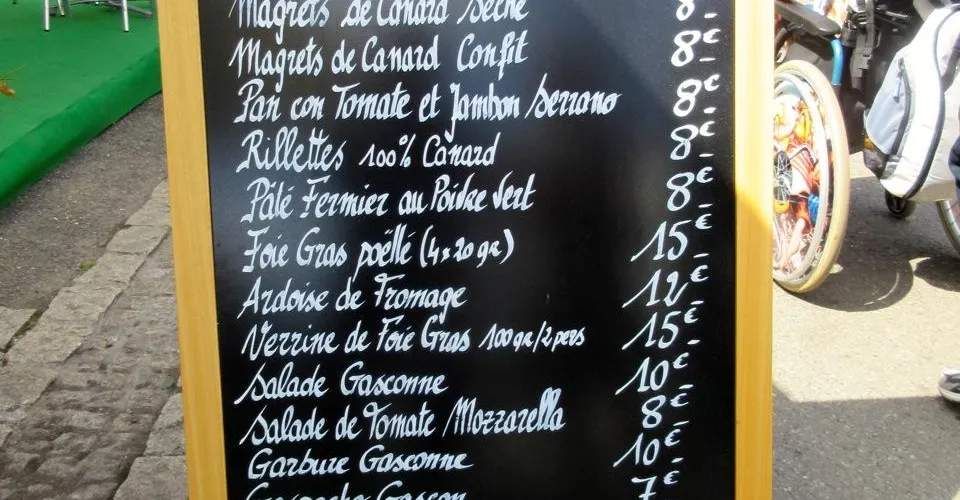 Magrets de Canard Séché 8€
Magrets de Canard Confit 8€
Pan con Tomate et Jambon Serrano 8€
Rillettes 100% Canard 8€
Pâté Fermier au Poivre Vert 8€
Foie Gras poëllé (4x20gr) 15€
Ardoise de Fromage 12€
Verrine de Foie Gras 100gr/2pers 15€
Salade Gasconne 10€
Salade de Tomate Mozzarella 8€
Garbure Gasconne 10€
Gaspacho Gascon 7€